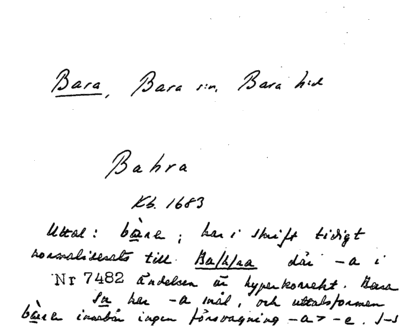 Bara, Bara sn, Bara hd
Bahra
Kb. 1683
Uttal: bàra; har i skrift tidigt
normaliserats till Ba/h/ra där -a i
Nr 7482 ändelsen är hyperkorrekt. Bara
sn har -a mål, och uttalsformen
bàra innebär ingen försvagning -a > -e. J-S